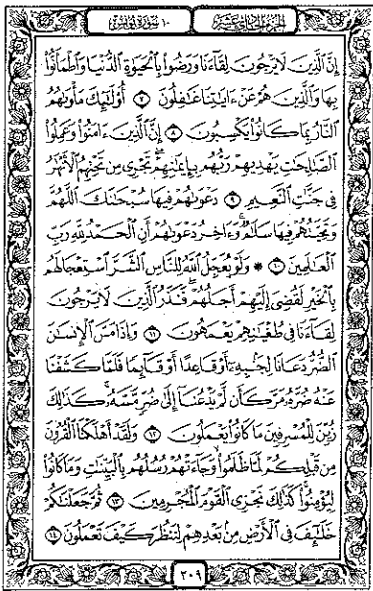 الجزء الحادي عشر
١٠ سورة يونس
إِنَّ الَّذِينَ لَا يَرْجُونَ لِقَاءَنَا وَرَضُوا بِالْحَيَوٰةِ الدُّنْيَا وَاطْمَأَنُّوا
بِهَا وَالَّذِينَ هُمْ عَنْ ءَايَٰتِنَا غَٰفِلُونَ ٧ أُو۟لَٰٓئِكَ مَأْوَىٰهُمُ
النَّارُ بِمَا كَانُوا يَكْسِبُونَ ٨ إِنَّ الَّذِينَ ءَامَنُوا وَعَمِلُوا
الصَّٰلِحَٰتِ يَهْدِيهِمْ رَبُّهُم بِإِيمَٰنِهِمْ ۖ تَجْرِي مِن تَحْتِهِمُ الْأَنْهَٰرُ
فِي جَنَّٰتِ النَّعِيمِ ٩ دَعْوَىٰهُمْ فِيهَا سُبْحَٰنَكَ اللَّهُمَّ
وَتَحِيَّتُهُمْ فِيهَا سَلَٰمٌ ۚ وَءَاخِرُ دَعْوَىٰهُمْ أَنِ الْحَمْدُ لِلَّهِ رَبِّ
الْعَٰلَمِينَ ١٠ ۞ وَلَوْ يُعَجِّلُ اللَّهُ لِلنَّاسِ الشَّرَّ اسْتِعْجَالَهُم
بِالْخَيْرِ لَقُضِيَ إِلَيْهِمْ أَجَلُهُمْ ۖ فَنَذَرُ الَّذِينَ لَا يَرْجُونَ
لِقَاءَنَا فِي طُغْيَٰنِهِمْ يَعْمَهُونَ ١١ وَإِذَا مَسَّ الْإِنسَٰنَ
الضُّرُّ دَعَانَا لِجَنبِهِ أَوْ قَاعِدًا أَوْ قَائِمًا فَلَمَّا كَشَفْنَا
عَنْهُ ضُرَّهُ مَرَّ كَأَن لَّمْ يَدْعُنَا إِلَىٰ ضُرٍّ مَّسَّهُ ۚ كَذَٰلِكَ
زُيِّنَ لِلْمُسْرِفِينَ مَا كَانُوا يَعْمَلُونَ ١٢ وَلَقَدْ أَهْلَكْنَا الْقُرُونَ
مِن قَبْلِكُمْ لَمَّا ظَلَمُوا ۙ وَجَاءَتْهُمْ رُسُلُهُم بِالْبَيِّنَٰتِ وَمَا كَانُوا
لِيُؤْمِنُوا ۚ كَذَٰلِكَ نَجْزِي الْقَوْمَ الْمُجْرِمِينَ ١٣ ثُمَّ جَعَلْنَٰكُمْ
خَلَٰٓئِفَ فِي الْأَرْضِ مِن بَعْدِهِمْ لِنَنظُرَ كَيْفَ تَعْمَلُونَ ١٤
٢٠٩